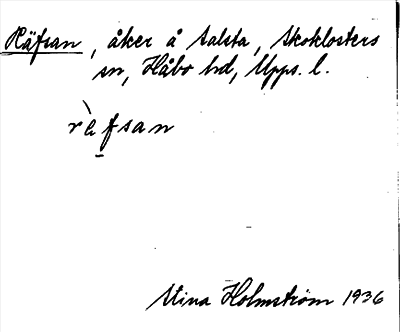 Räfsan, åker å Salsta, Skoklosters
sn, Håbo hd, Upps. l.
rὲfsan
Stina Holmström 1936